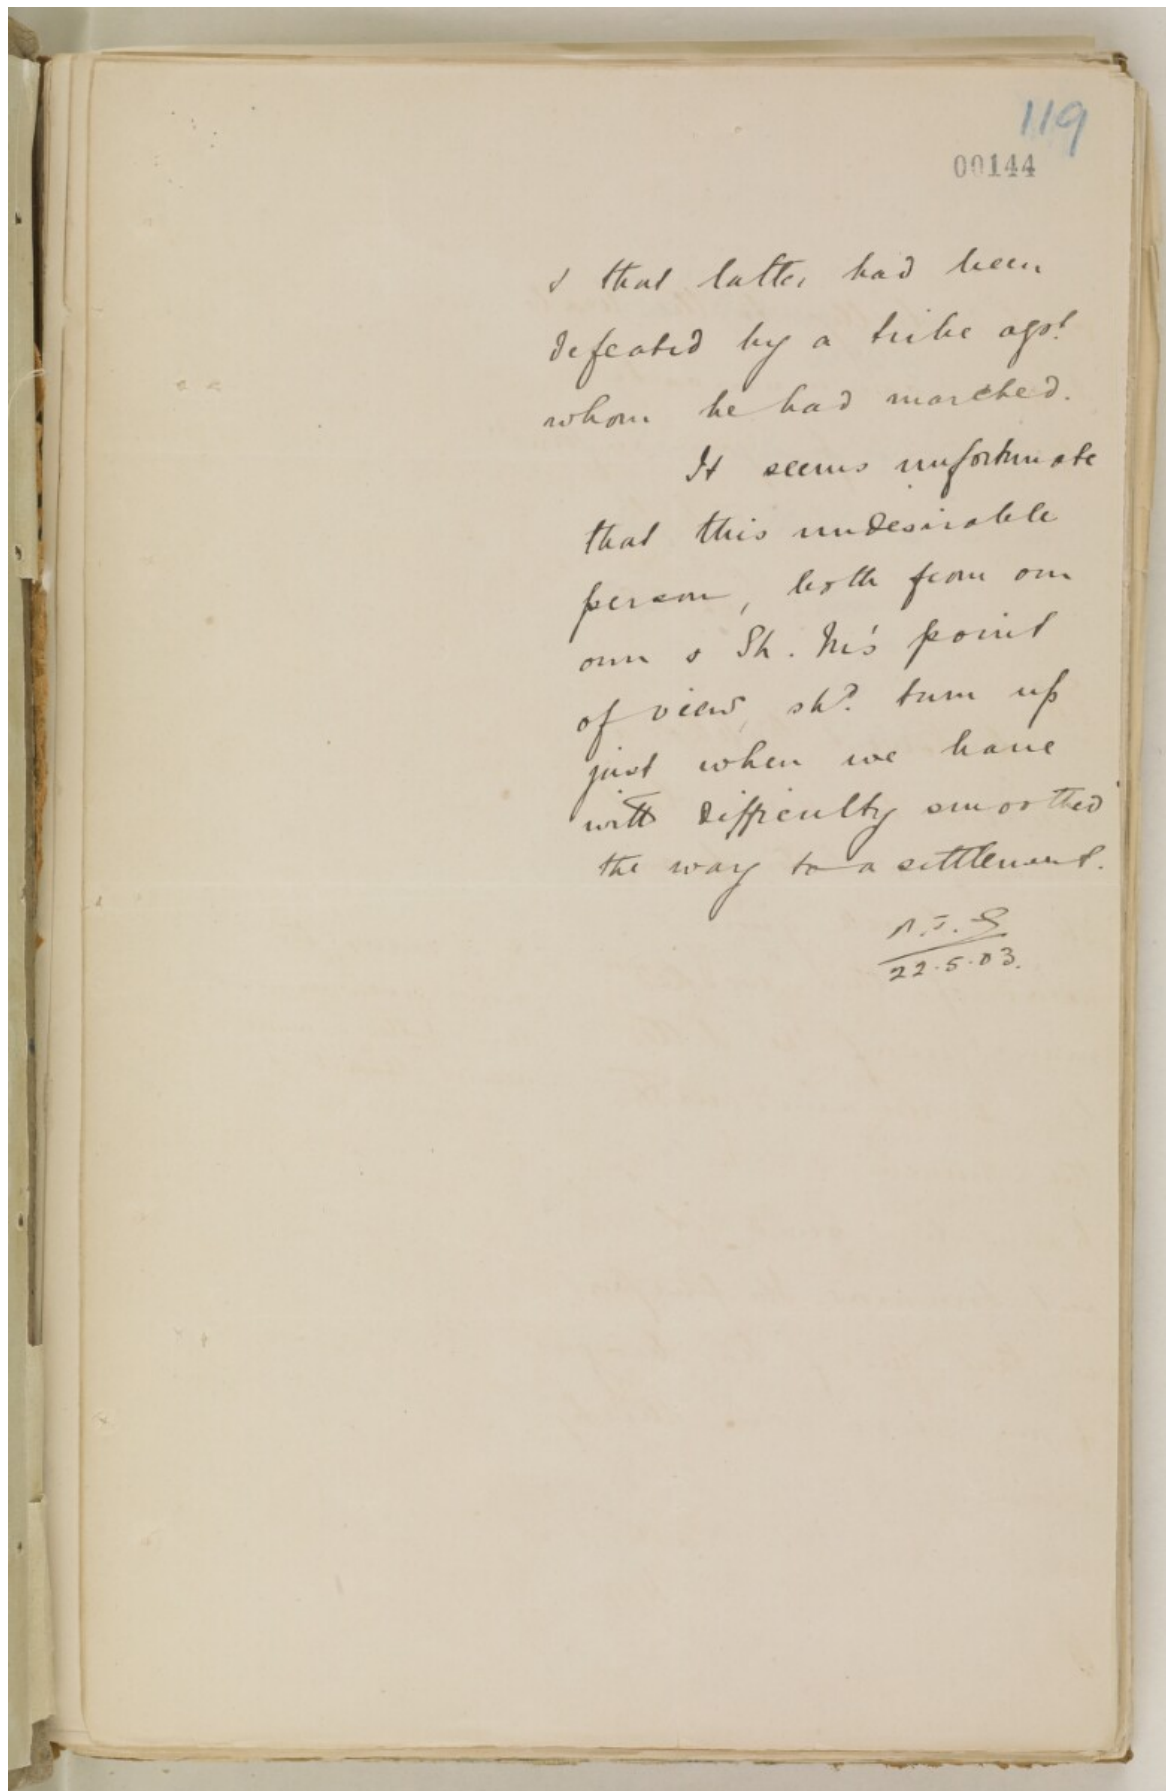 119
00144
& that latter had been
defeated by a tribe agst
whom he had marched.
It seems unfortunate
that this undesirable
person, both from our
own & Sh. M's point
of view, shd. turn up
just when we have
with difficulty smoothed
the way to a settlement.
22.5.03.